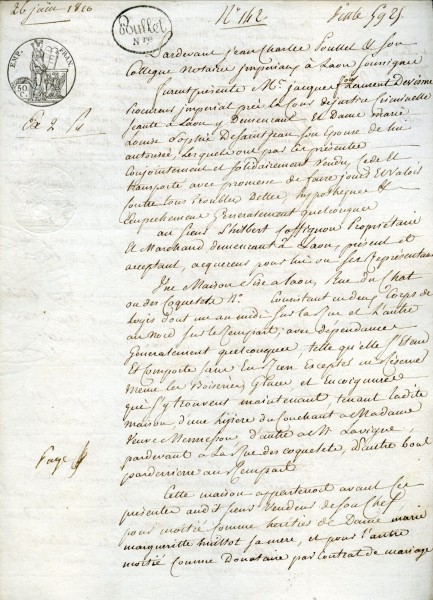 26 juin 1810
N° 142
Vente 592f
Pouillet
N re
EMP. FRAN.
50
Pardevant Jean Charles Pouillet & Son
Collegue Notaires Impériaux à Laon Soussignés
Furent présents Mr. Jacques Laurent Devisme
Procureur impérial près la Cour de justice Criminelle
Séante à Laon y Demeurant et Dame Marie
Louise Sophie Son Epouse de lui
autorisée, Lesquels ont par les présentes
Conjointement et Solidairement Vendu, Cédé et
transporté avec promesse de faire jouir et Valoir
Contre tous troubles Dettes, hypotheques &
Empechements Generalement quelconques
au Sieur Propriétaire
et Marchand demeurant à Laon, présent et
acceptant, acquereur pour lui ou Ses Représentans
Une Maison Sise à Laon, Rue du Chat
ou des Coquelets N°. Consistant en deux Corps de
logis dont un au midi Sur la Rue et L'autre
au Nord Sur le Rempart, avec dependances
Generalement quelconques, telle qu'elle S'Etend
et Comporte Sans en Rien Excepter ni Réserver
même les Boiseries, Glaces et Encoignures
qui S'y trouvent maintenant tenant Ladite
maison d'une lisiere du Couchant à Madame
Veuve Mennesson, d'autre à Mr. Lavigne,
pardevant à La Rue des Coquelets, d'autre bout
parderriere au Rempart
Cette maison appartenoit avant Ces
présentes audit Sieur Vendeur de Son Chef
pour moitié Comme héritier de Dame marie
margueritte Sa mere, et pour l'autre
moitié Comme Donataire par Contrat de mariage